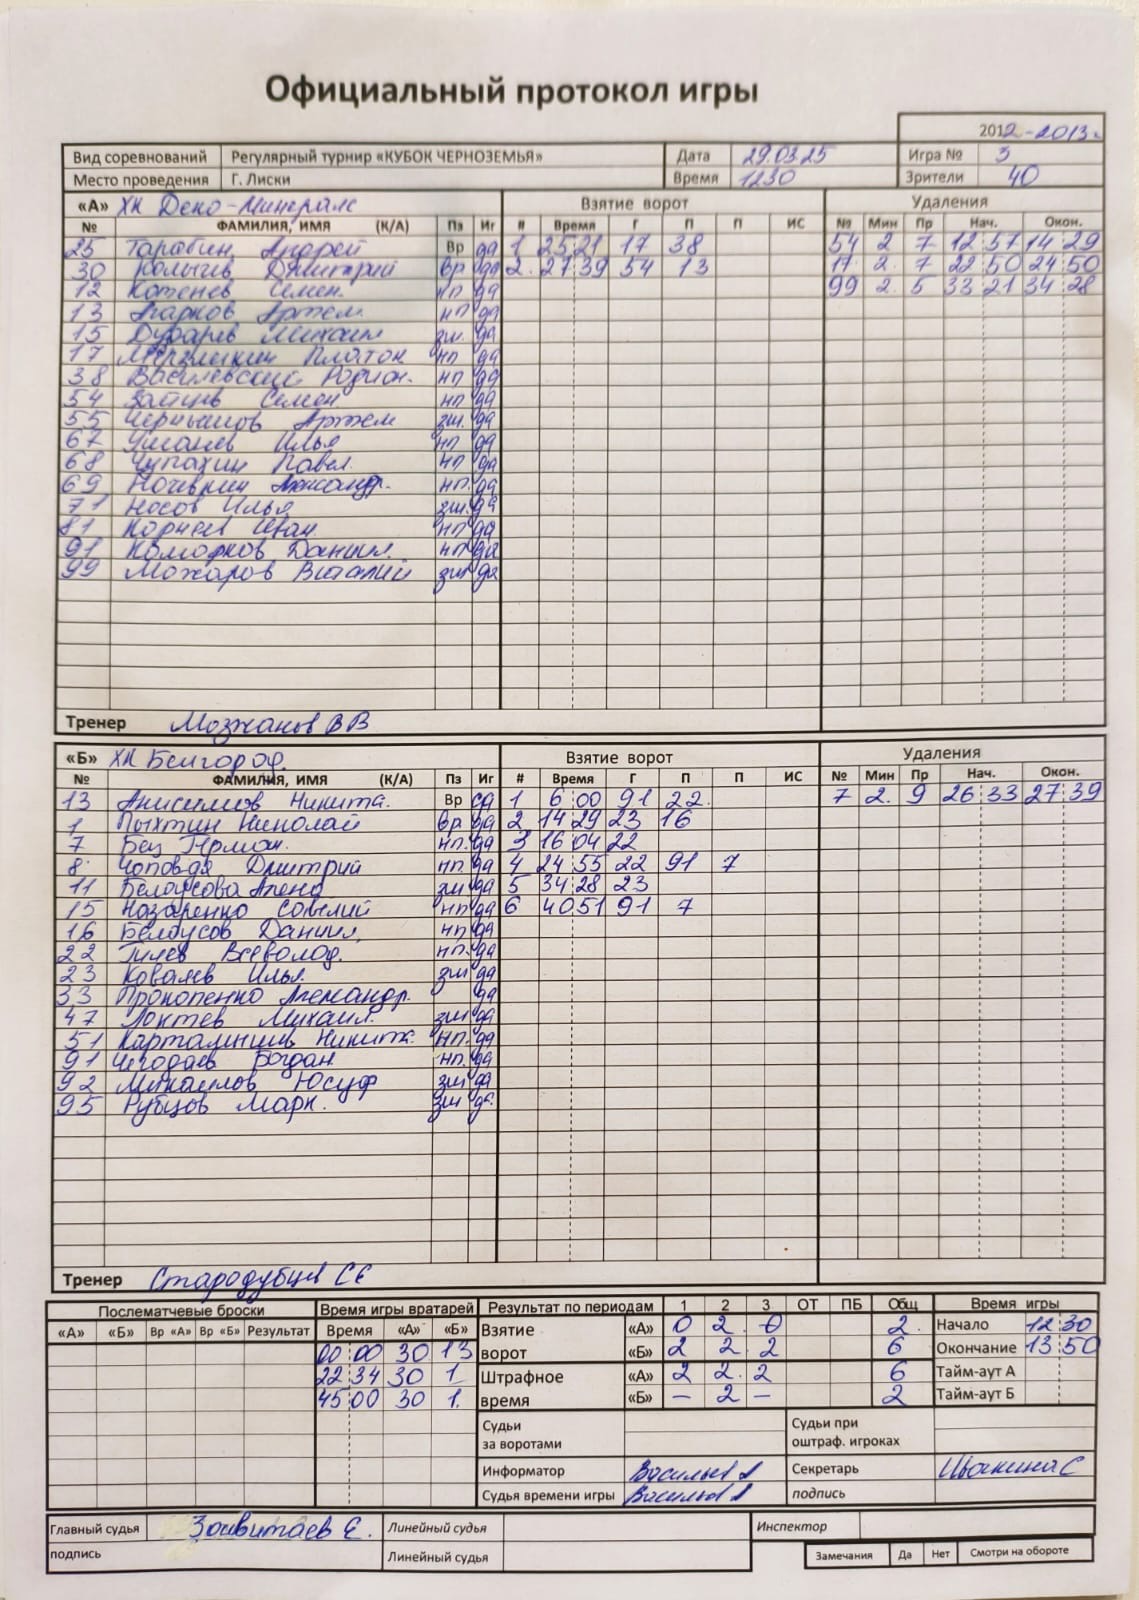 Официальный протокол игры
2012-2013г
Вид соревнований Регулярный турнир «КУБОК ЧЕРНОЗЕМЬЯ» Дата 29.03.25 Игра № 3
Место проведения Г. Лиски Время 1230 Зрители 40
«А» ХК Деко-Минералс Взятие ворот Удаления
№ ФАМИЛИЯ, ИМЯ (К/А) Пз Иг # Время Г П П ИС № Мин Пр Нач. Окон.
25 Тарабин Андрей Вр да 1 25 21 17 38 54 2 7 12 57 14 29
30 Колычев Дмитрий Вр да 2. 27 39 54 13 17 2. 7 22 50 24 50
12 Котенев Семен. нп да 99 2. 5 33 21 34 28
13 Артем. нп да
15 Михаил зщ. да
17 Платон нп да
38 Василевский Родион. нп да
54 Зайцев Семен нп да
55 Чернышов Артем зщ. да
67 Илья нп да
68 Чупахин Павел. нп да
69 Александр. нп. да
71 Носов Илья зщ. да
81 Корнев Иван нп да
91 Комарков Даниил. нп да
99 Можаров Виталий зщ да
Тренер Мозжанов В В
«Б» ХК Белгород. Взятие ворот Удаления
№ ФАМИЛИЯ, ИМЯ (К/А) Пз Иг # Время Г П П ИС № Мин Пр Нач. Окон.
13 Анисимов Никита. Вр да 1 6 00 91 22. 7 2. 9 26 33 27 39
1 Пыхтин Николай вр. да 2 14 29 23 16
7 Бец Герман. нп. да 3 16 04 22
8 Чоповдя Дмитрий нп. да 4 24 55 22 91 7
11 Белоусова Алена зщ да 5 34 28 23
15 Назаренко Савелий нп да 6 40 51 91 7
16 Белоусов Даниил, нп да
22 Гичев Всеволод. нп. да
23 Ковалев Илья. зщ да
33 Прокопенко Александр. да
47 Локтев Михаил. зщ да
51 Никита. нп. да
91 Чегодаев Богдан нп. да
92 Микаилов Юсуф зщ да
95 Рубцов Марк. зщ да
Тренер Стародубцев С Е
Послематчевые броски Время игры вратарей Результат по периодам 1 2 3 ОТ ПБ Общ Время игры
«А» «Б» Вр «А» Вр «Б» Результат Время «А» «Б» Взятие ворот «А» 0 2. 0 2. Начало 12 30
00 00 30 13 «Б» 2 2 2 6 Окончание 13 50
22 34 30 1 Штрафное время «А» 2 2. 2 6 Тайм-аут А
45 00 30 1. «Б» – 2 – 2 Тайм-аут Б
Судьи за воротами Судьи при оштраф. игроках
Информатор Васильев А Секретарь Иванина С
Судья времени игры Васильев А подпись
Главный судья Е. Линейный судья Инспектор
подпись Линейный судья Замечания Да Нет Смотри на обороте